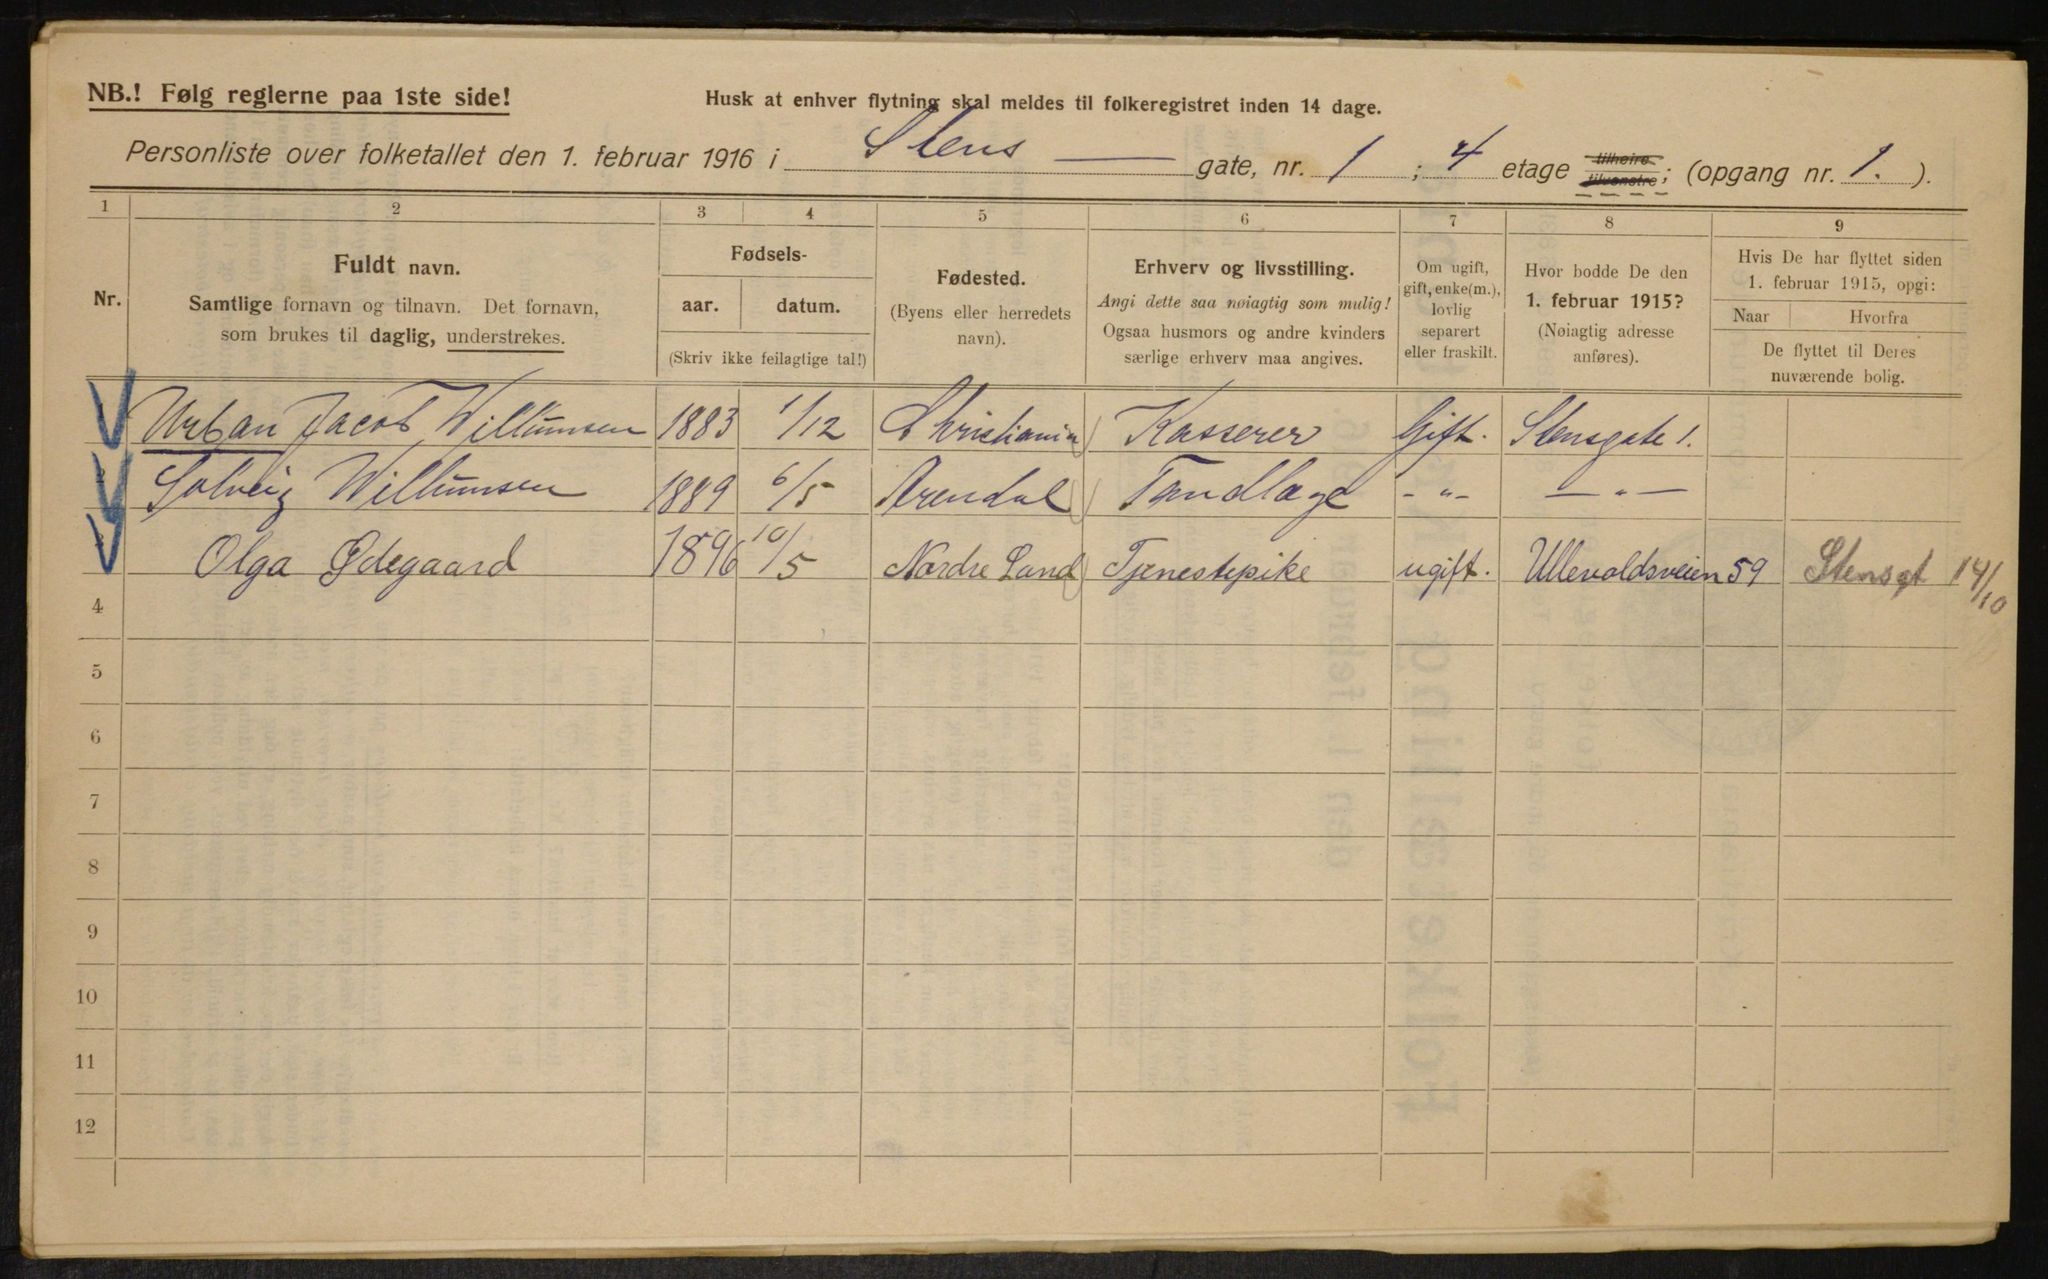 NB.! Følg reglerne paa 1ste side!
Husk at enhver flytning skal meldes til folkeregistret inden 14 dage.
Personliste over folketallet den 1. februar 1916 i Stens gate, nr. 1 ; 4 etage tilheire tilvenstre; (opgang nr. 1. ).
1 2 3 4 5 6 7 8 9
Nr.
Fuldt navn.
Samtlige fornavn og tilnavn. Det fornavn,
som brukes til daglig, understrekes.
Fødsels-
aar. datum.
(Skriv ikke feilagtige tal!)
Fødested.
(Byens eller herredets
navn).
Erhverv og livsstilling.
Angi dette saa nøiagtig som mulig!
Ogsaa husmors og andre kvinders
særlige erhverv maa angives.
Om ugift,
gift, enke(m.),
lovlig
separert
eller fraskilt.
Hvor bodde De den
1. februar 1915?
(Nøiagtig adresse
anføres).
Hvis De har flyttet siden
1. februar 1915, opgi:
Naar Hvorfra
De flyttet til Deres
nuværende bolig.
Urban Jacob Willumsen 1883 1/12 Christiania Kasserer Gift. Stensgate 1.
Solveig Willumsen 1889 6/5 Arendal Tandlæge - " - - " -
Olga Ødegaard 1896 10/5 Nordre Land Tjenestepike ugift. Ullevoldsveien 59 Stensgt 14/10
4
5
6
7
8
9
10
11
12